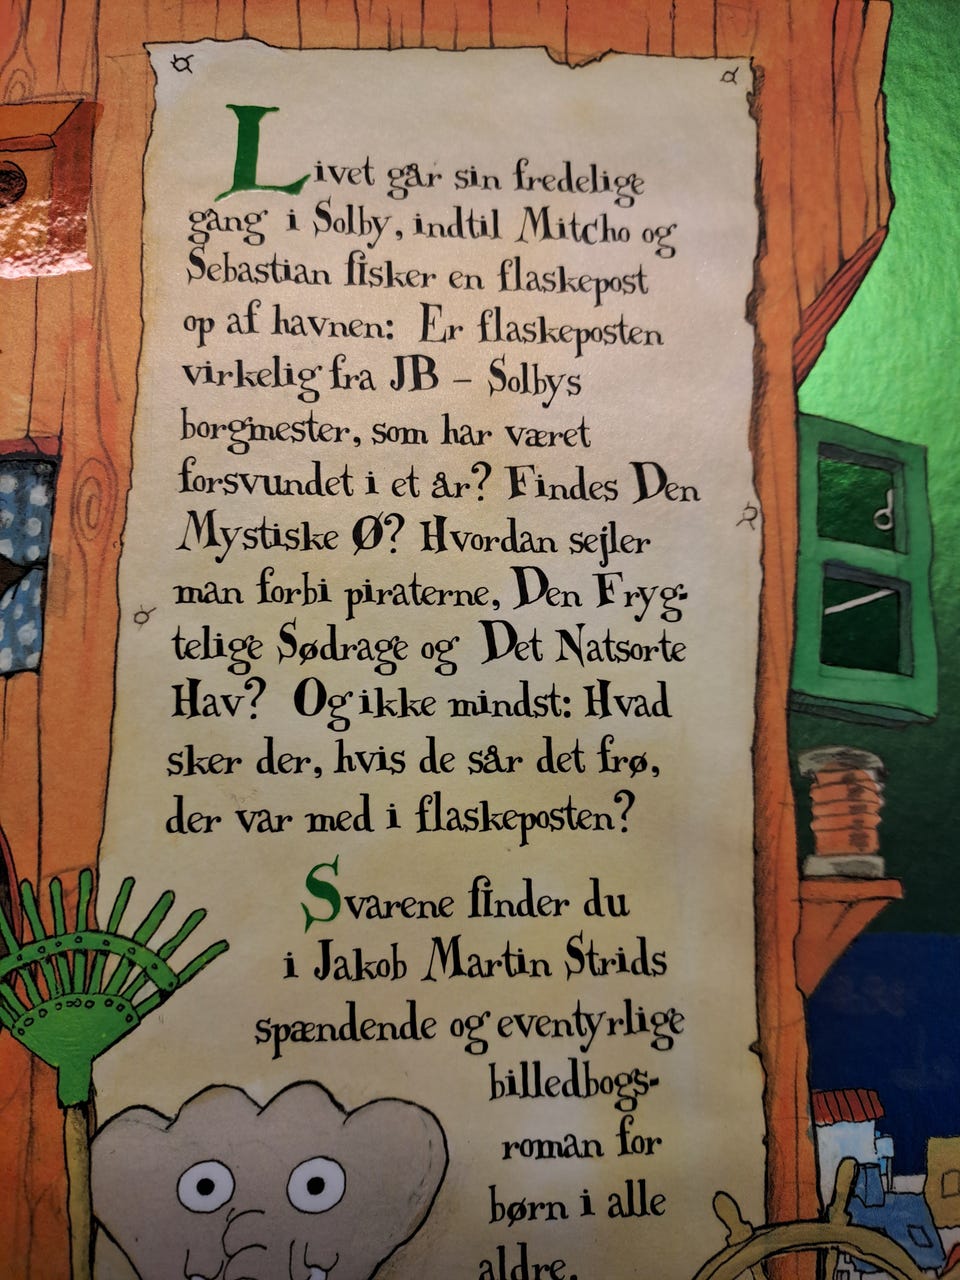 Livet går sin fredelige
gang i Solby, indtil Mitcho og
Sebastian fisker en flaskepost
op af havnen: Er flaskeposten
virkelig fra JB – Solbys
borgmester, som har været
forsvundet i et år? Findes Den
Mystiske Ø? Hvordan sejler
man forbi piraterne, Den Fryg-
telige Sødrage og Det Natsorte
Hav? Og ikke mindst: Hvad
sker der, hvis de sår det frø,
der var med i flaskeposten?
Svarene finder du
i Jakob Martin Strids
spændende og eventyrlige
billedbogs-
roman for
børn i alle
aldre.